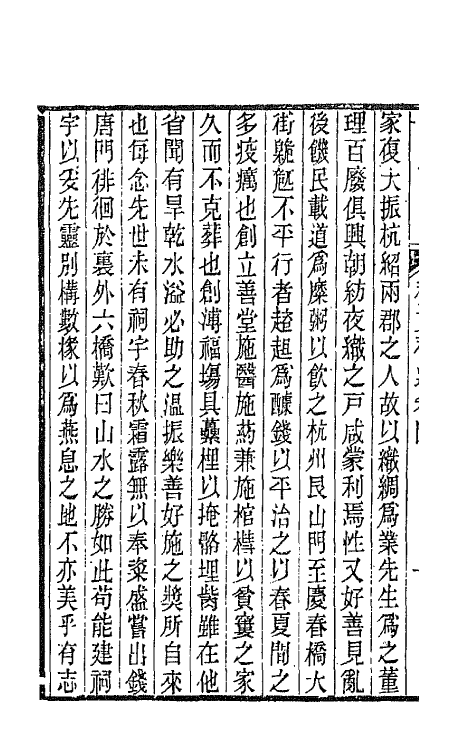 家復大振杭紹兩郡之人故以織綢爲業先生爲之董
理百廢俱興朝紡夜織之戸咸蒙利焉性又好善見亂
後饑民載道爲糜粥以飲之杭州艮山門至慶春橋大
街臲卼不平行者趑趄爲醵錢以平治之以春夏間之
多疫癘也創立善堂施醫施葯兼施棺槥以貧窶之家
久而不克葬也創溥福塲具虆梩以掩骼埋胔雖在他
省聞有旱乾水溢必助之温振樂善好施之奬所自來
也每念先世未有祠宇春秋霜露無以奉粢盛嘗出錢
唐門徘徊於裏外六橋歎曰山水之勝如此苟能建祠
宇以妥先靈別構數椽以爲燕息之地不亦美乎有志